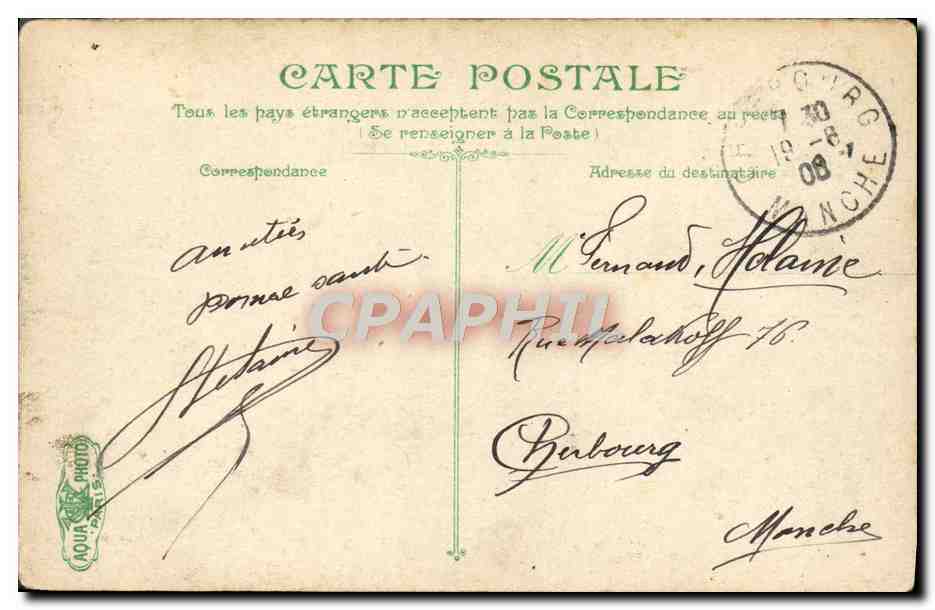 CARTE POSTALE
Tous les pays étrangers n'acceptent pas la Correspondance au recto
(Se renseigner à la Poste)
Correspondance
Adresse du destinataire
CHERBOURG
30
19 -8
08
MANCHE
amitiés
bonne santé
M Fernand
Rue Malakoff 76
Cherbourg
Manche
CPAPHIL
AQUA PHOTO
PARIS